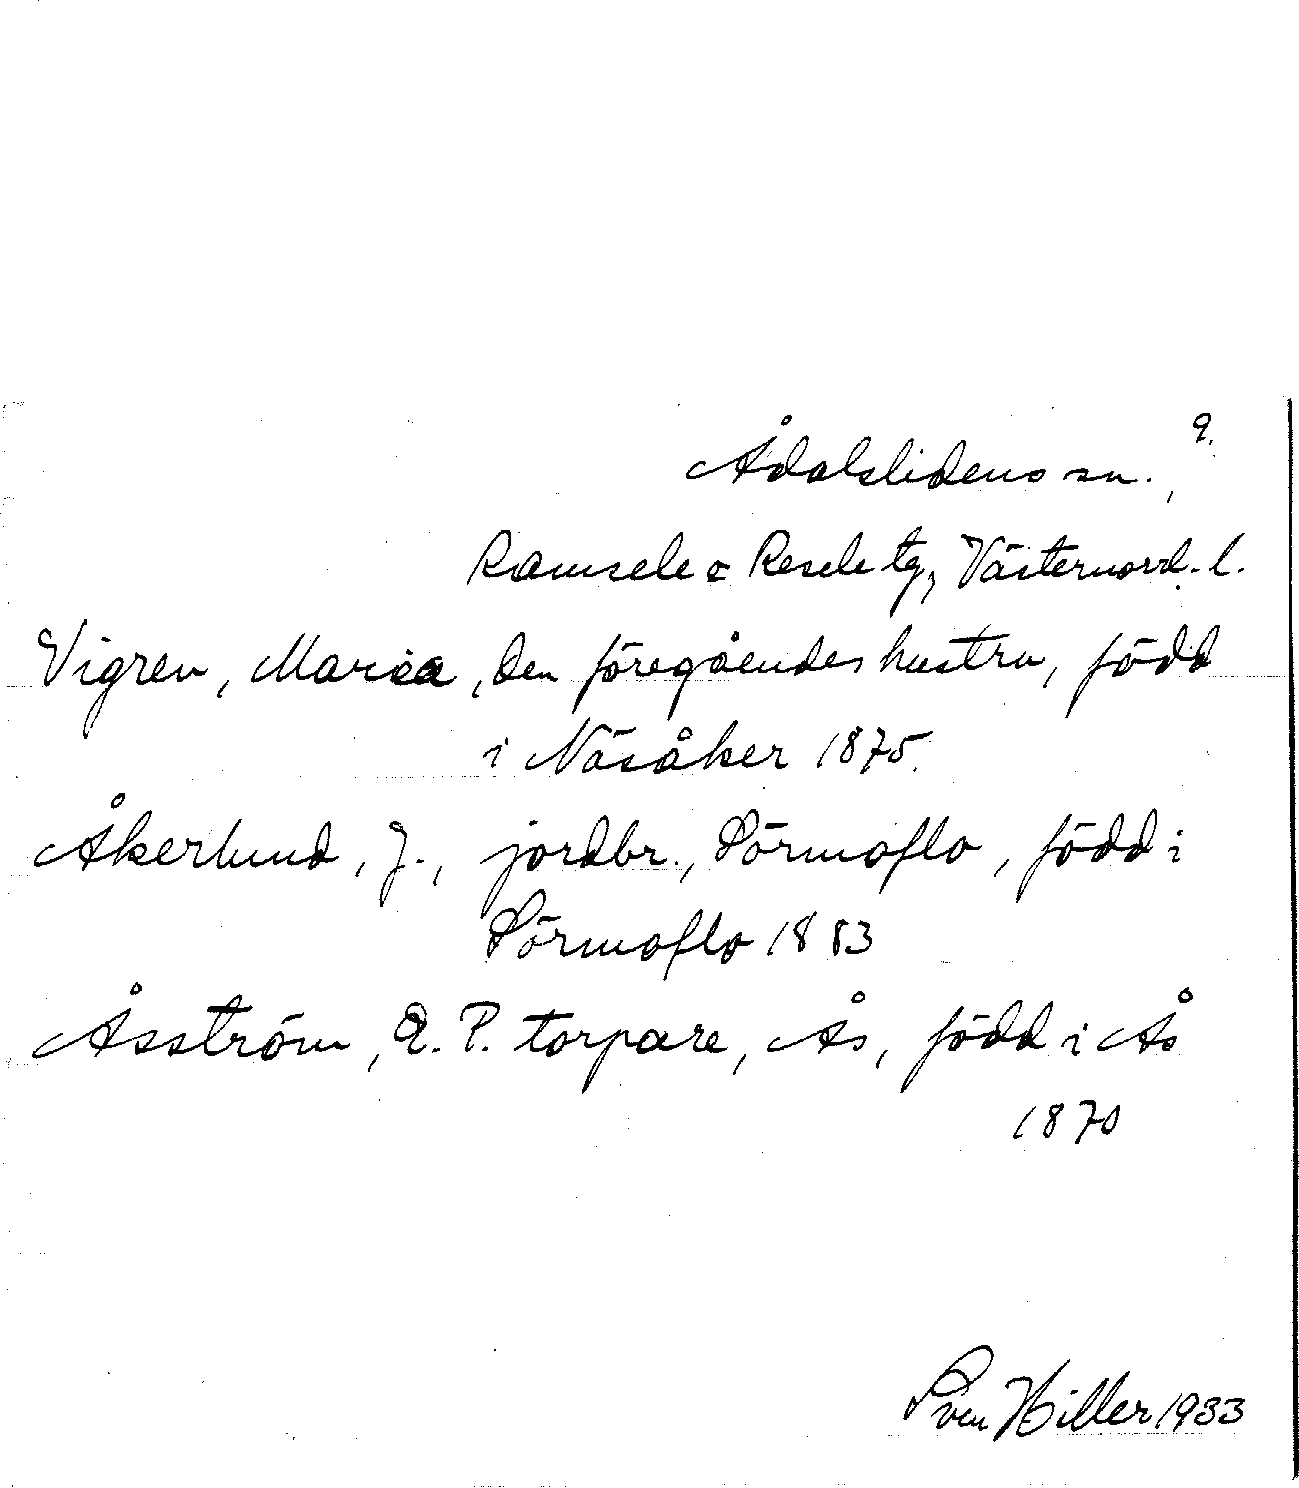 9.
Ådalslidens sn.,
Ramsele o Resele tg, Västernorrl. l.
Vigren, Maria, den föregåendes hustru, född
i Näsåker 1875.
Åkerlund, J., jordbr., Sörmoflo, född i
Sörmoflo 1883
Åsström, E. P. torpare, Ås, född i Ås
1870
Sven Hiller 1933